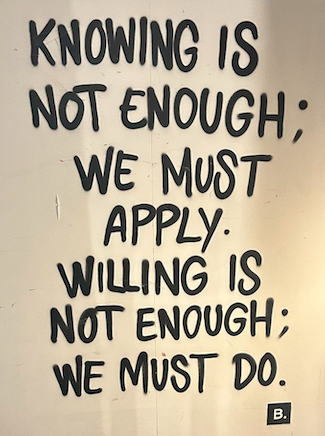 KNOWING IS
NOT ENOUGH;
WE MUST
APPLY.
WILLING IS
NOT ENOUGH;
WE MUST DO.
B.